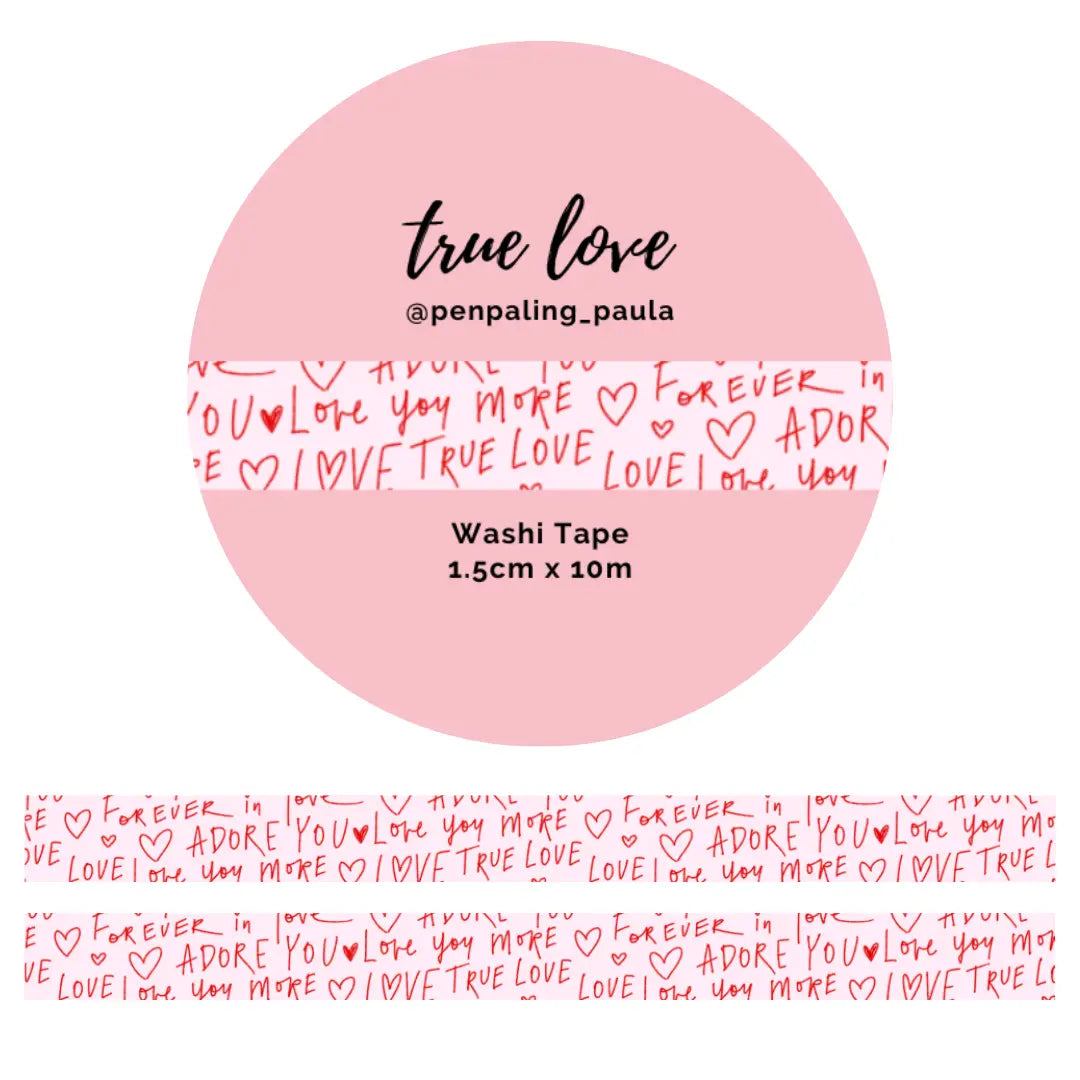 true love
@penpaling_paula
ADORE YOU
YOU♥Love you MORE ♡ FOREVER in
♡ I LOVE TRUE LOVE ♡ ♡ ADOR
LOVE Love you
Washi Tape
1.5cm x 10m
♡ FOREVER in love ♡ ADORE ♡ FOREVER in love ♡ ADORE
♡ ♡ ADORE YOU♥Love you MORE ♡ ♡ ADORE YOU♥Love you MO
LOVE Love you MORE ♡ I LOVE TRUE LOVE LOVE Love you MORE ♡ I LOVE TRUE L
♡ FOREVER in love ♡ ADORE ♡ FOREVER in love ♡ ADORE
♡ ♡ ADORE YOU♥Love you MORE ♡ ♡ ADORE YOU♥Love you MOR
LOVE Love you MORE ♡ I LOVE TRUE LOVE LOVE Love you MORE ♡ I LOVE TRUE LO